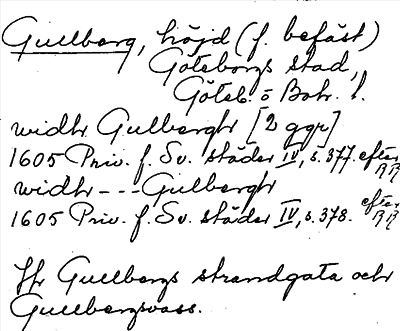 Gullberg, höjd (f. befäst)
Göteborgs stad,
Göteb. o Boh. l.
widh Gulbergh [2 ggr]
1605 Priv. f. Sv. städer IV, s. 377. efter RR
widh --- Gulbergh
1605 Priv. f. Sv. städer IV, s. 378. efter RR
Jfr Gullbergs strandgata och
Gullbergsvass.